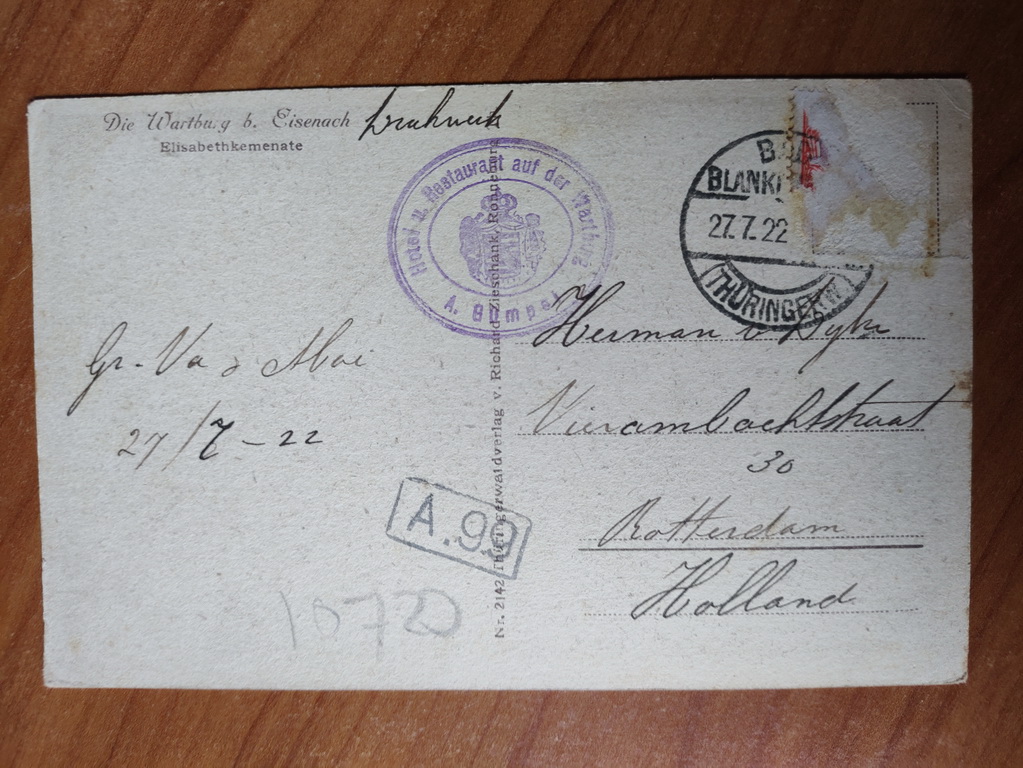 Die Wartburg b. Eisenach
Elisabethkemenate
Hotel u. Restaurant auf der Wartburg
A. Bümpel
BAD
BLANK
27.7.22
(THÜRINGERW.)
Nr. 2142 Thüringerwaldverlag v. Richard Zieschank, Ronneburg
Gr. Va
27/7-22
Herman v Dyke
Vierambachtstraat
30
Rotterdam
Holland
A.99
10720